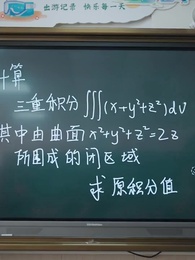 出游记录 快乐每一天
计算
三重积分∭(x+y²+z²)dv
其中由曲面 x²+y²+z²=2z
所围成的闭区域
求原积分值